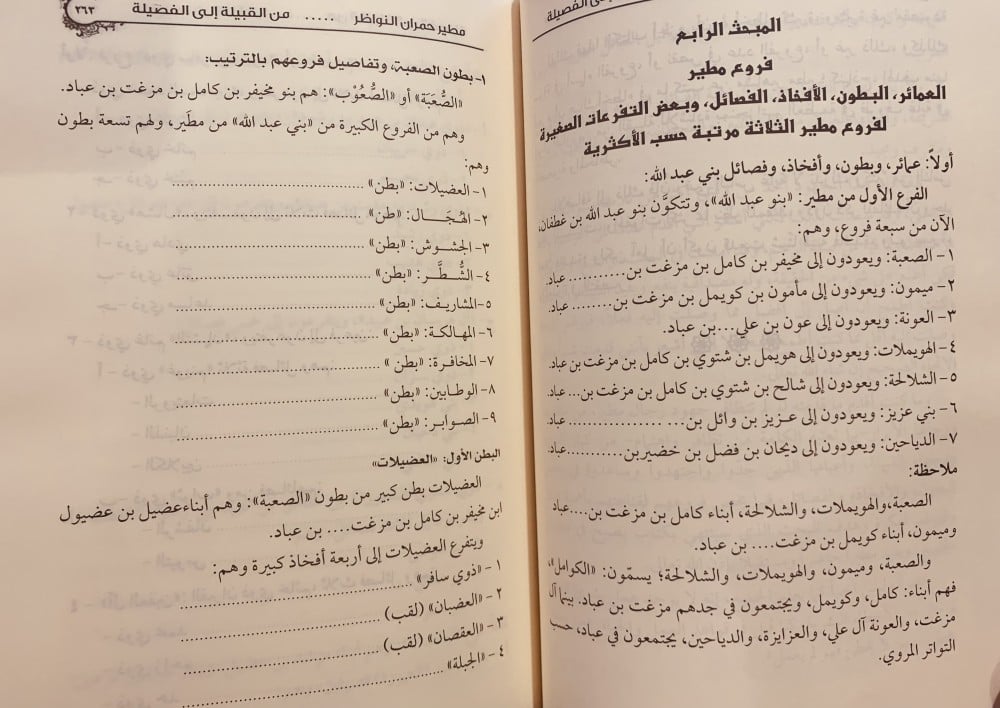 المبحث الرابع
فروع مطير
العمائر، البطون، الأفخاذ، الفصائل، وبعض التفرعات الصغيرة
لفروع مطير الثلاثة مرتبة حسب الأكثرية
أولاً: عمائر، وبطون، وأفخاذ، وفصائل بني عبد الله:
الفرع الأول من مطير: «بنو عبد الله»، وتتكوَّن بنو عبد الله بن غطفان،
الآن من سبعة فروع، وهم:
١- الصعبة: ويعودون إلى مخيفر بن كامل بن مزغت بن ......... عباد.
٢- ميمون: ويعودون إلى مأمون بن كويمل بن مزغت بن......... عباد.
٣- العونة: ويعودون إلى عون بن علي...بن عباد.
٤- الهويملات: ويعودون إلى هويمل بن شتوي بن كامل بن مزغت بن عباد.
٥- الشلالحة: ويعودون إلى شالح بن شتوي بن كامل بن مزغت بن... عباد.
٦- بني عزيز: ويعودون إلى عزيز بن وائل بن... ................ عباد.
٧- الدياحين: ويعودون إلى ديحان بن فضل بن خضير بن............ عباد.
ملاحظة:
الصعبة، والهويملات، والشلالحة، أبناء كامل بن مزغت بن....عباد
وميمون، أبناء كويمل بن مزغت.... بن عباد.
والصعبة، وميمون، والهويملات، والشلالحة؛ يسمّون: «الكوامل»،
فهم أبناء: كامل، وكويمل، ويجتمعون في جدهم مزغت بن عباد. بينما آل
مزغت، والعونة آل علي، والعزايزة، والدياحين، يجتمعون في عباد، حسب
التواتر المروي.
مطير حمران النواظر ..... من القبيلة إلى الفصيلة
٣٦٣
١- بطون الصعبة، وتفاصيل فروعهم بالترتيب:
«الصُّعَبَة» أو «الصُّعُوْب»: هم بنو مخيفر بن كامل بن مزغت بن عباد.
وهم من الفروع الكبيرة من «بني عبد الله» من مطَير، ولهم تسعة بطون
وهم:
١- العضيلات: «بطن» ................................
٢- الهُجَال: «طن» ................................
٣- الحشوش: «بطن» ................................
٤- الشُّطَّر: «بطن» ................................
٥-المشاريف: «بطن» ................................
٦- المهالكة: «بطن» ................................
٧- المخافرة: «بطن » ................................
٨- الوطابين: «بطن» ................................
٩- الصوابر: «بطن» ................................
البطن الأول: «العضيلات»
العضيلات بطن كبير من بطون «الصعبة»: وهم أبناء عضيل بن عضيول
ابن مخيفر بن كامل بن مزغت.... بن عباد.
ويتفرع العضيلات إلى أربعة أفخاذ كبيرة وهم:
١- «ذوي سافر» ................................
٢- «العضبان» (لقب) ................................
٣- «العقصان» (لقب) ................................
٤- «الجبلة» ................................